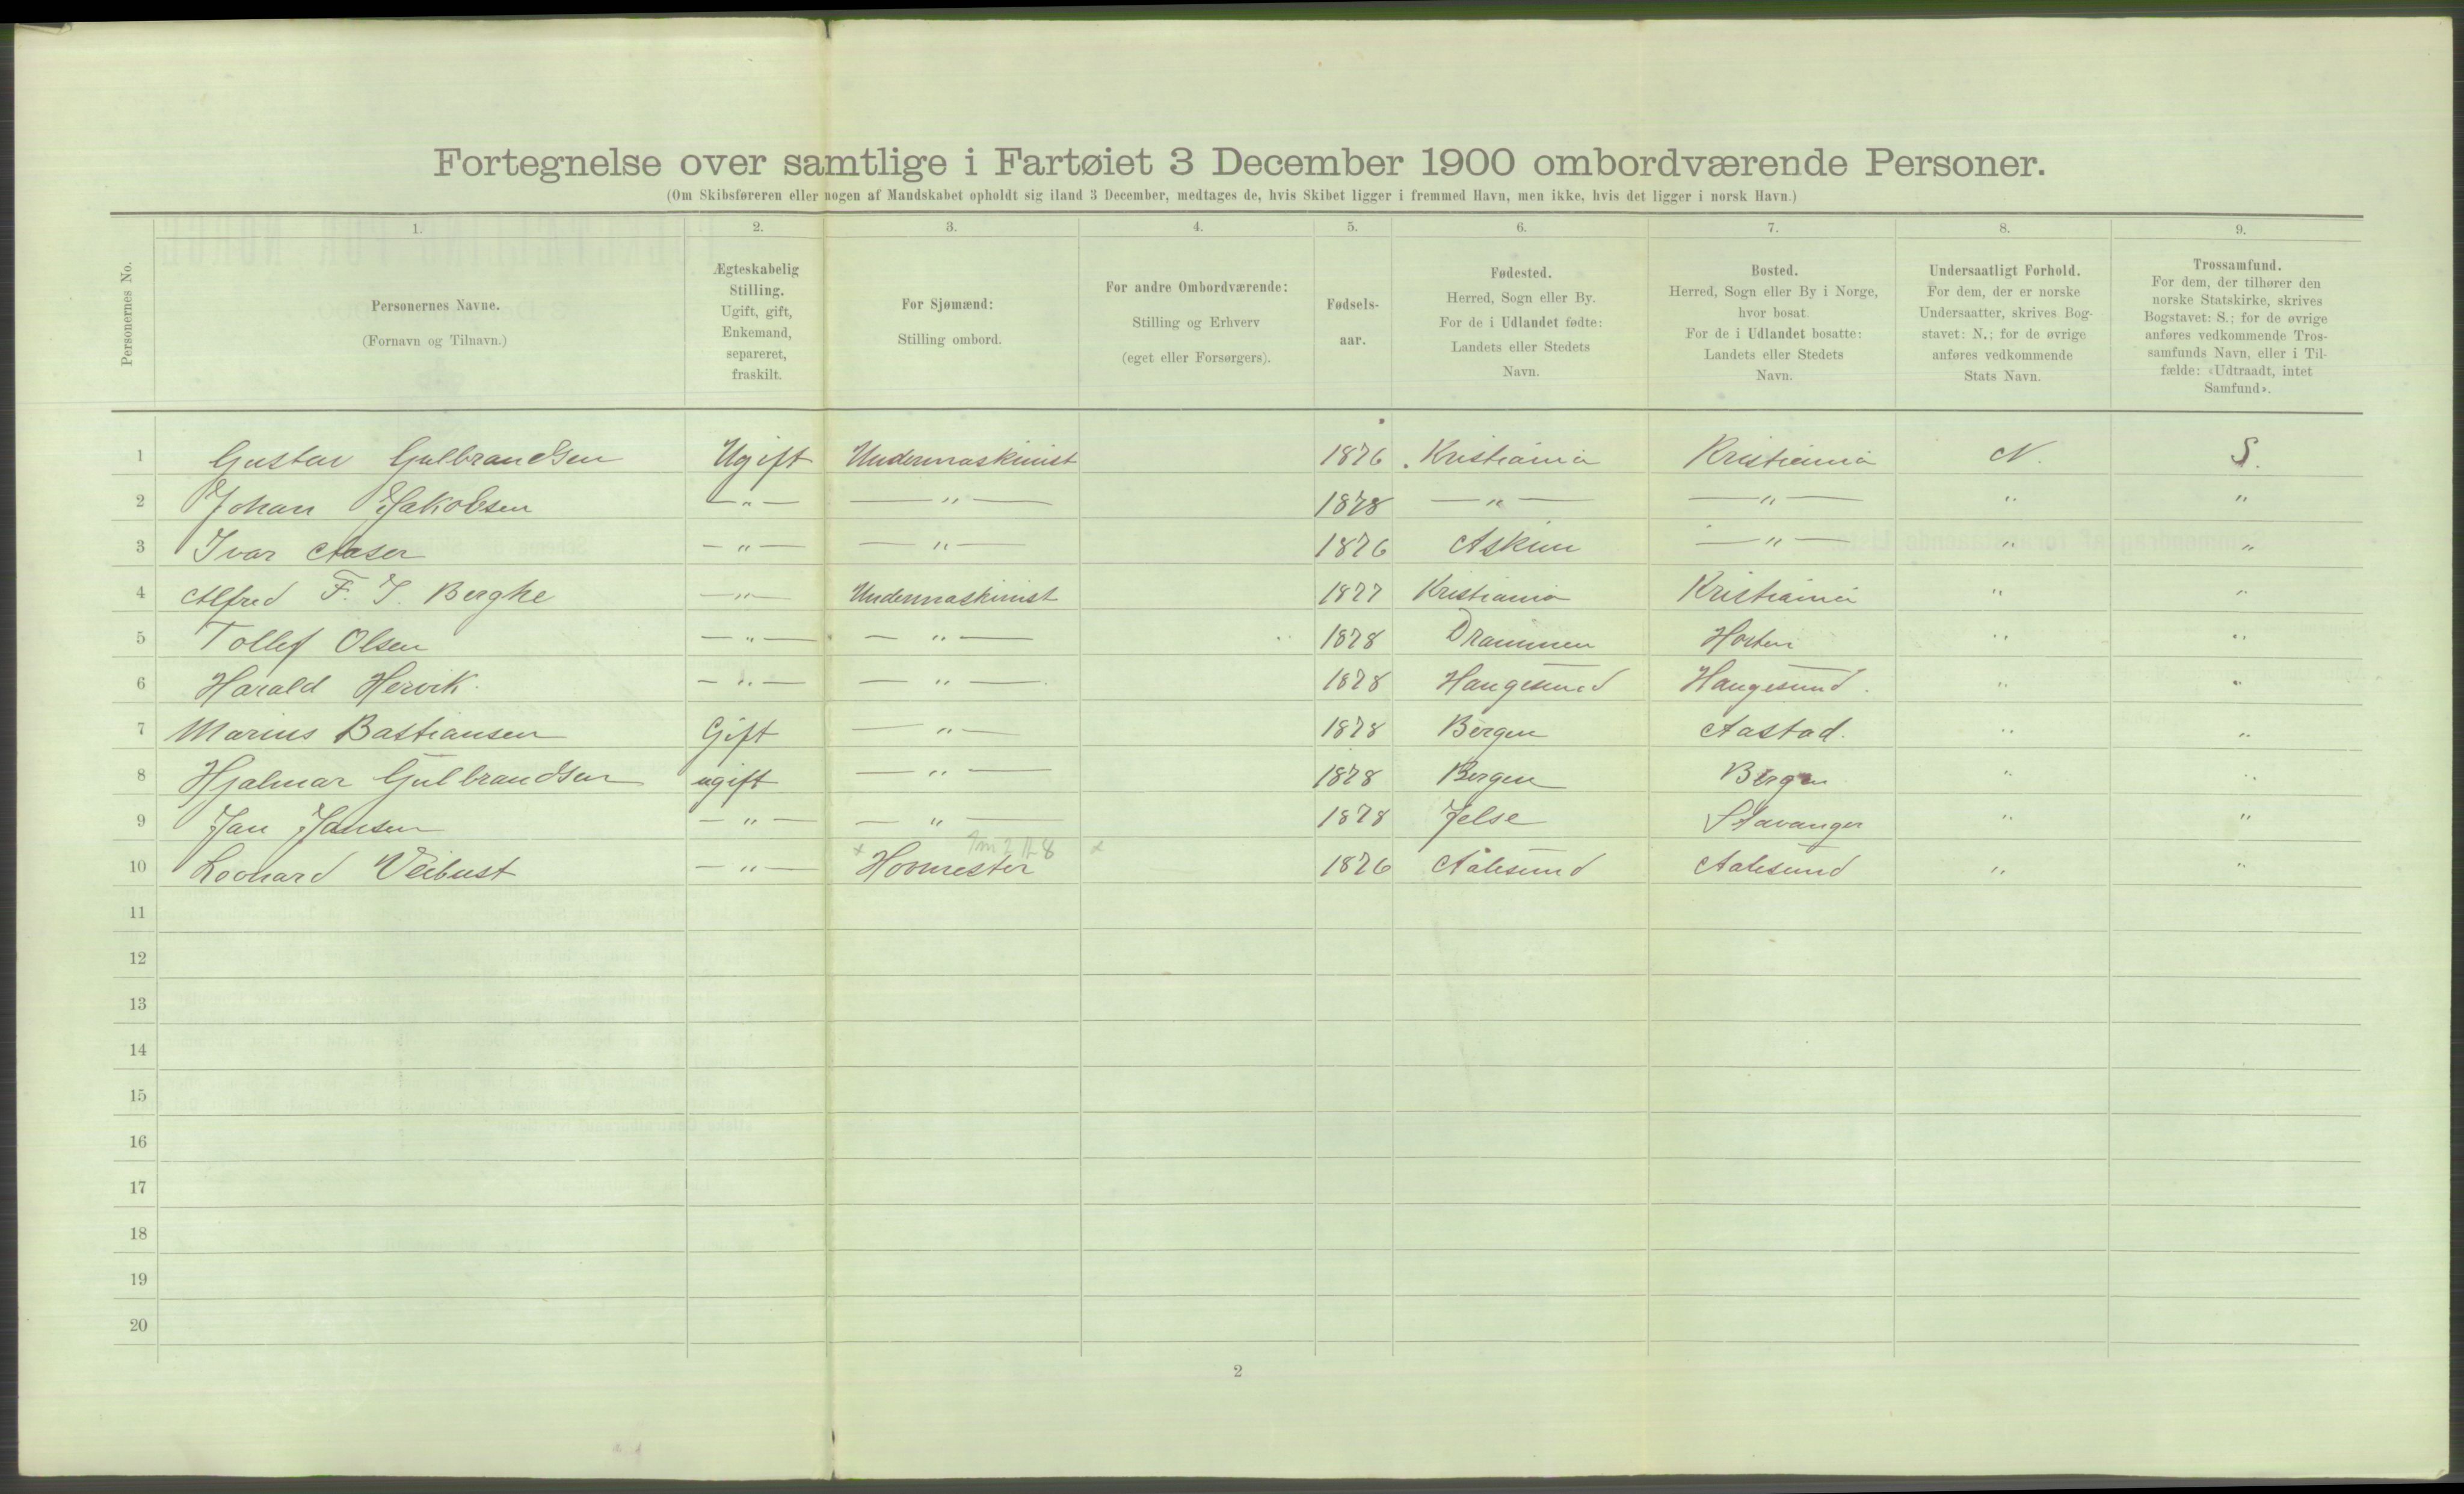 Fortegnelse over samtlige i Fartøiet 3 December 1900 ombordværende Personer.
(Om Skibsføreren eller nogen af Mandskabet opholdt sig iland 3 December, medtages de, hvis Skibet ligger i fremmed Havn, men ikke, hvis det ligger i norsk Havn.)
Personernes No.
1. 2. 3. 4. 5. 6. 7. 8. 9.
Personernes Navne.
(Fornavn og Tilnavn.)
Ægteskabelig
Stilling.
Ugift, gift,
Enkemand,
separeret,
fraskilt.
For Sjømænd:
Stilling ombord.
For andre Ombordværende:
Stilling og Erhverv
(eget eller Forsørgers).
Fødsels-
aar.
Fødested.
Herred, Sogn eller By.
For de i Udlandet fødte:
Landets eller Stedets
Navn.
Bosted.
Herred, Sogn eller By i Norge,
hvor bosat.
For de i Udlandet bosatte:
Landets eller Stedets
Navn.
Undersaatligt Forhold.
For dem, der er norske
Undersaatter, skrives Bog-
stavet: N.; for de øvrige
anføres vedkommende
Stats Navn.
Trossamfund.
For dem, der tilhører den
norske Statskirke, skrives
Bogstavet: S.; for de øvrige
anføres vedkommende Tros-
samfunds Navn, eller i Til-
fælde: «Udtraadt, intet
Samfund».
1 Gustav Gulbrandsen Ugift Undermaskinist 1876 Kristiania Kristiania N. S.
2 Johan Jakobsen — " — — " — 1878 — " — — " — " "
3 Ivar Aaser — " — — " — 1876 Askim — " — " "
4 Alfred F. J. Berghe — " — Undermaskinist 1877 Kristiania Kristiania " "
5 Tollef Olsen — " — — " — 1878 Drammen Horten " "
6 Harald Hervik. — " — — " — 1878 Haugesund Haugesund. " "
7 Marius Bastiansen Gift — " — 1878 Bergen Aastad. " "
8 Hjalmar Gulbrandsen ugift — " — 1878 Bergen Bergen " "
9 Jan Jansen — " — — " — 1878 Jelse Stavanger " "
10 Leonard Veibust — " — Hovmester 1876 Aalesund Aalesund " "
11
12
13
14
15
16
17
18
19
20
2